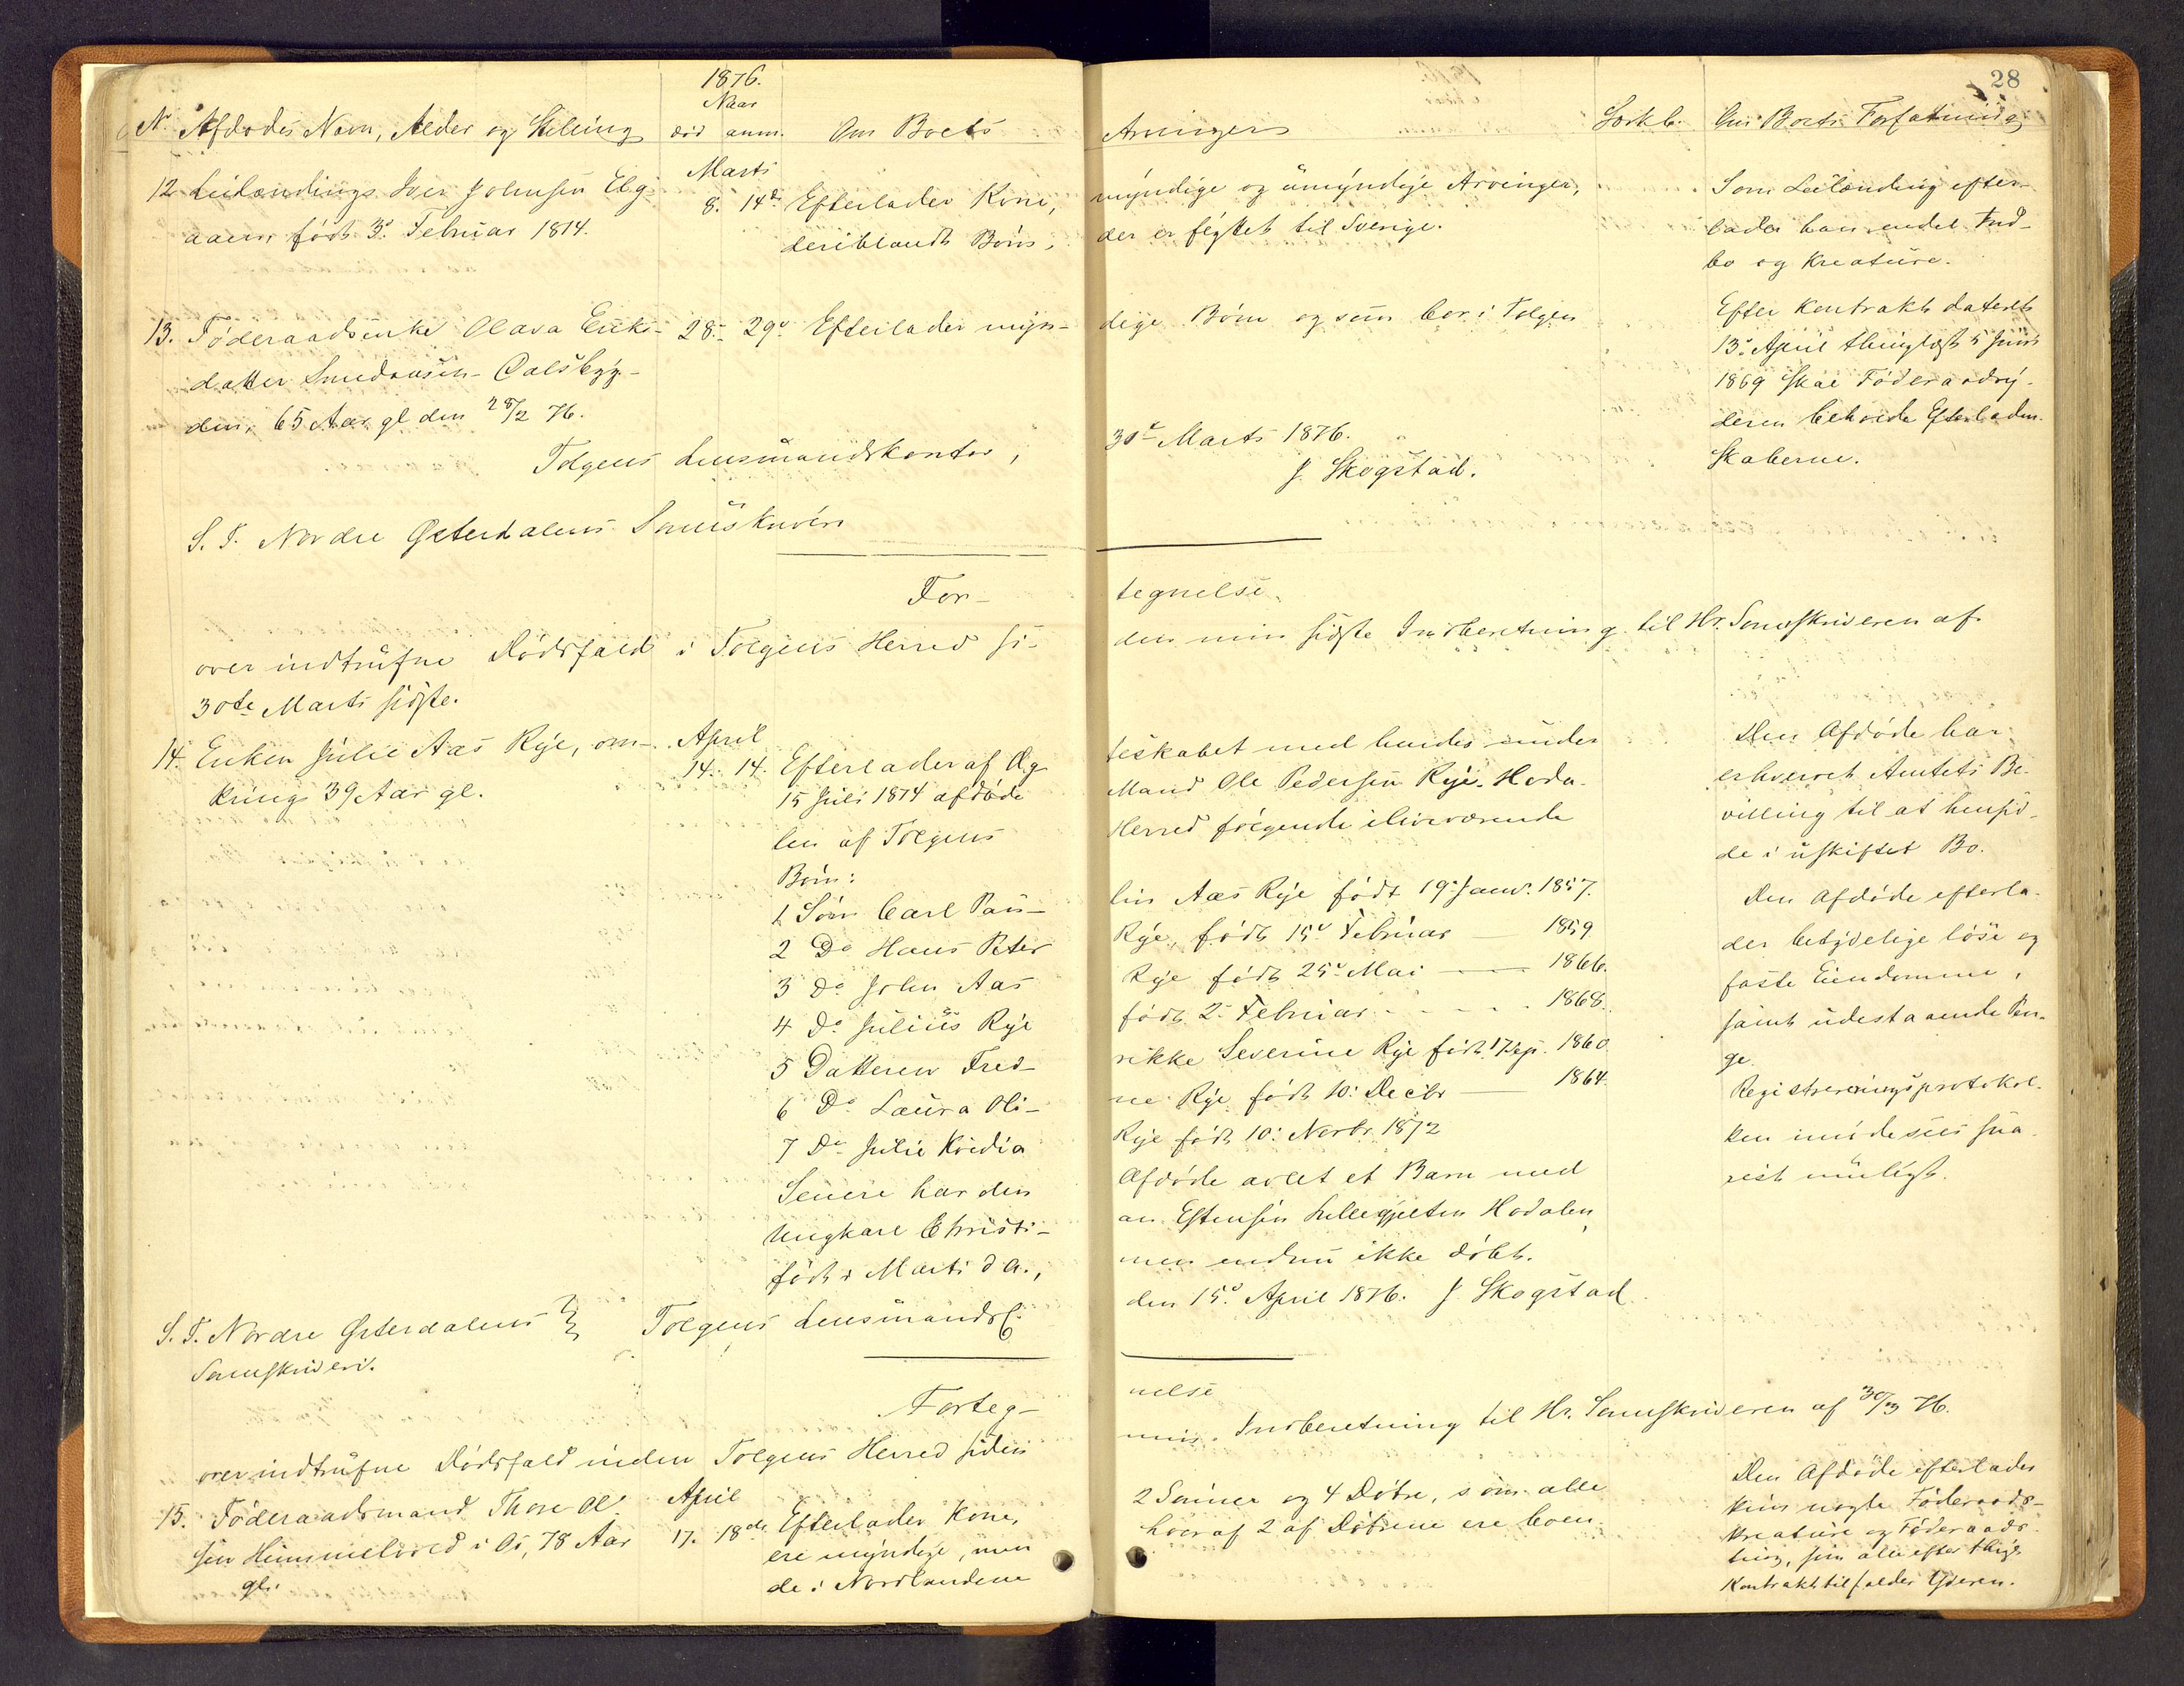 28
1876.
Naar
No Afdødes Navn, Alder og Stilling død anm. Om Boets Arvinger Om Boets Forfatning
12 Leilænding Iver Johnsen Elg-
aaen, født 3d Februar 1814.
Marts
8. 14de Efterlader Kone, myndige og umyndige Arvinger,
deriblandt Børn, der er flyttet til Sverige.
Som Leilænding efter-
lader han endel Ind-
bo og Kreature.
13. Føderaadsenke Olava Eriks- 28. 29de Efterlader myn- dige Børn og som bor i Tolgen
datter - Dalsbyg-
den, 65 Aar gl den 28/2 76.
Efter Kontrakt dateret
13de April thinglæst 5 Juni
1869 skal Føderaadsy-
deren beholde Efterladen-
skaberne.
Tolgens Lensmandskontor, 30te Marts 1876.
J. Skogstad.
S. T. Nordre Østerdalens Sorenskriveri
For- tegnelse
over indtrufne Dødsfald i Tolgens Herred si- den min sidste Indberetning til Hr. Sorenskriveren af
30te Marts sidste.
14. Enken Julie Aas Rye, om-
kring 39 Aar gl.
April
14. 14. Efterlader af Æg- teskabet med hendes under
15 Juli 1874 afdøde Mand Ole Pedersen Rye-Hoda-
len af Tolgens Herred følgende iliveværende
Børn:
1 Søn Carl Pau- lin Aas Rye født 19de Janr. 1857.
2 Do Hans Peter Rye, født 15d Februar — 1859
3 Do John Aas Rye født 25d Mai — 1866.
4 Do Julius Rye født 2. Februar - - - 1868.
5 Datteren Fred- rikke Severine Rye født 17 Sep. 1860
6 Do Laura Oli- ne Rye født 10. Decbr — 1864.
7 Do Julie Rye født 10. Novbr. 1872
Senere har den Afdøde avlet et Barn med
Ungkarl Christi- an Estensen Lillegjelten Hodalen,
født i Marts d A., men endnu ikke døbt.
Den Afdøde har
erhvervet Amtets Be-
villing til at hensid-
de i uskiftet Bo.
Den Afdøde efterla-
der betydelige løse og
faste Eiendomme,
samt udestaaende Pen-
ge.
Registreringsprotokol-
len imødesees sna-
rest muligt.
S. T. Nordre Østerdalens
Sorenskriveri.
Tolgens Lensmandsk. den 15d April 1876. J Skogstad
Forteg- nelse
over indtrufne Dødsfald inden Tolgens Herred siden min Indberetning til Hr. Sorenskriveren af 30/3 76.
15. Føderaadsmand Thore Ol-
sen Hummelvold i Os, 78 Aar
gl.
April
17. 18de Efterlader Kone, 2 Sønner og 4 Døtre, som alle
ere myndige, men hvoraf 2 af Døtrene ere boen-
de i Nordlandene
Den Afdøde efterlader
kun nogle Føderaads-
kreature og Føderaads-
ting, som alle efter thingl.
Kontrakt tilfalder Yderen.